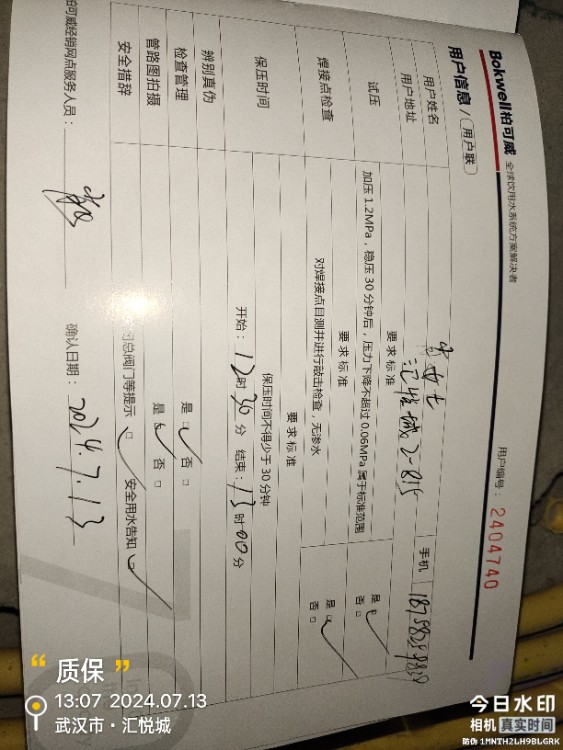 Bokwell柏可威 全球饮用水系统方案解决者
用户信息 / 用户联
用户编号：2404740
用户姓名 女士 手机
用户地址 汇悦城 2-815
要求标准
试压 加压 1.2MPa，稳压 30 分钟后，压力下降不超过 0.06MPa 属于标准范围 是 否
要求标准
焊接点检查 对焊接点目测并进行敲击检查，无渗水 是 否
要求标准
保压时间 保压时间不得少于 30 分钟
开始：12时30分 结束：13时00分
辨别真伪
检查管理 是 否
管路图拍摄 是 否
安全措辞 总阀门等提示 安全用水告知
柏可威经销网点服务人员：
确认日期：2024.7.13
“ 质保 ”
13:07 2024.07.13
武汉市·汇悦城
今日水印
相机 真实时间
防伪 1MNTH2LH9BLGRK